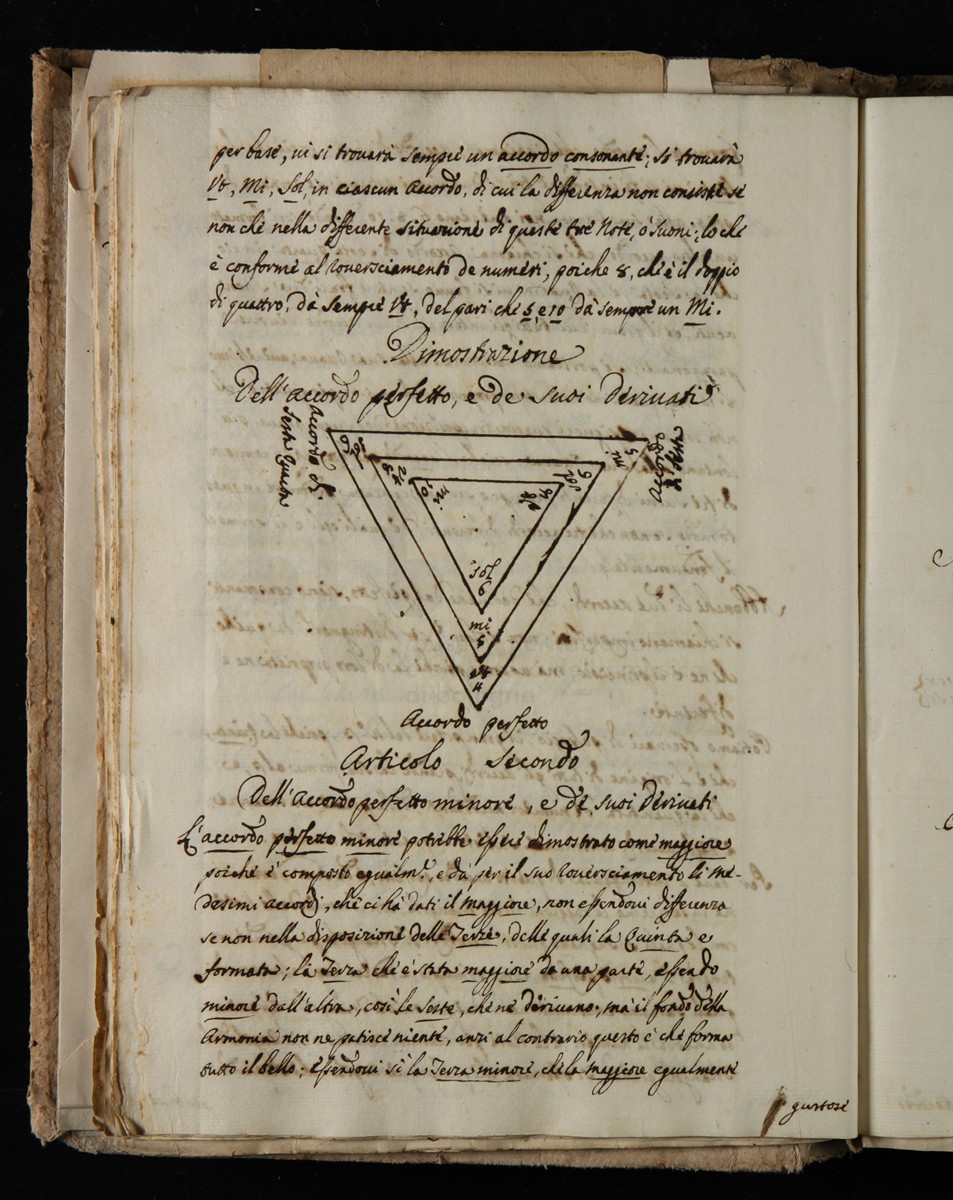 per base, ui si trouarà sempre un accordo consonante; si trouarà
Vt, Mi, Sol, in ciascun accordo, di cui la differenza non consiste se
non che nella differente situazione di queste tre Note, ò suoni; lo che
è conforme al rouersciamento de numeri, poiche 8, che è il doppio
di quattro, dà sempre Vt, del pari che 5, e 10 dà sempre un Mi.
Dimostrazione
Dell'accordo perfetto, e de suoi Deriuati
Accordo di
Sesta Quarta
Accordo
di Sesta
6
sol
5
mi
8
Vt
6
sol
10
mi
8
Vt
sol
6
mi
5
Vt
4
Accordo perfetto
Articolo Secondo
Dell'Accordo perfetto minore, e de suoi Deriuati
L'accordo perfetto minore potrebbe essere dimostrato come maggiore
poiche è composto egualm.e, e dà per il suo rouersciamento li me-
desimi accordi, che ci hà dati il maggiore, non essendoui differenza
se non nella disposizione delle Terze, delle quali la Quinta e
formata; la Terza che è stata maggiore da una parte, essendo
minore dall'altra, così le seste, che ne deriuano; mà il fondo della
Armonia non ne patisce niente, anzi al contrario questo è che forma
tutto il bello; essendoui sì la Terza minore, che la maggiore egualmente
gustose